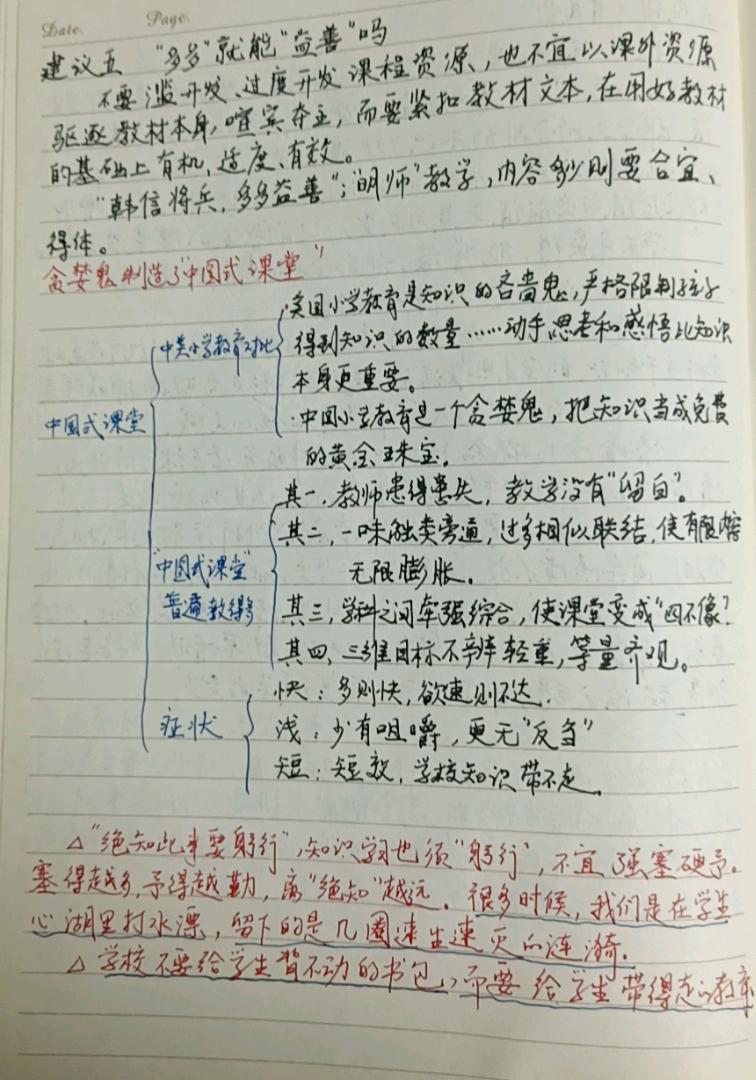 Date.
Page.
建议五 "多多"就能"益善"吗
不要滥开发、过度开发课程资源,也不宜以课外资源
驱逐教材本身,喧宾夺主,而要紧扣教材文本,在用好教材
的基础上有机、适度、有效。
"韩信将兵,多多益善";"明师"教学,内容多少则要合宜、
得体。
贪婪鬼制造了"中国式课堂"
美国小学教育是知识的吝啬鬼,严格限制孩子
中美小学教育对比
得到知识的数量……动手思考和感悟比知识
本身更重要。
中国式课堂
·中国小学教育是一个贪婪鬼,把知识当成免费
的黄金珠宝。
其一,教师患得患失,教学没有"留白"。
其二,一味触类旁通,过多相似联结,使有限内容
"中国式课堂"
无限膨胀。
普遍教得多
其三,学科之间牵强综合,使课堂变成"四不像"。
其四,三维目标不辨轻重,等量齐观。
快:多则快,欲速则不达.
症状
浅:少有咀嚼,更无"反刍"
短:短效,学校知识带不走。
△"绝知此事要躬行",知识学习也须"躬行",不宜强塞硬予。
塞得越多,予得越勤,离"绝知"越远。很多时候,我们是在学生
心湖里打水漂,留下的是几圈速生速灭的涟漪。
△学校不要给学生背不动的书包,而要给学生带得走的教育